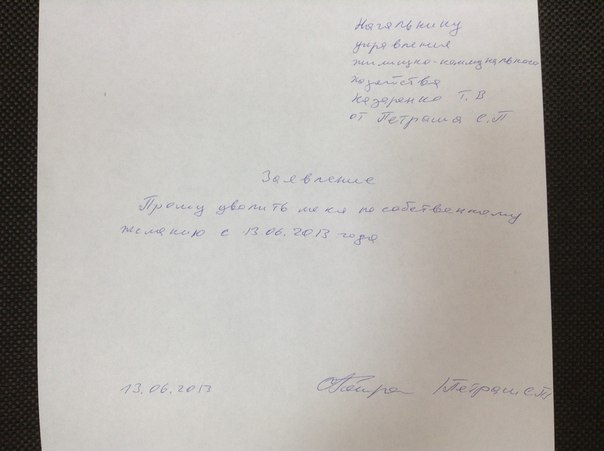 Начальнику
управления
жилищно-коммунального
хозяйства
Назаренко Т.В
от Петраша С.П
Заявление
Прошу уволить меня по собственному
желанию с 13.06.2013 года
13.06.2013 Петраш С.П